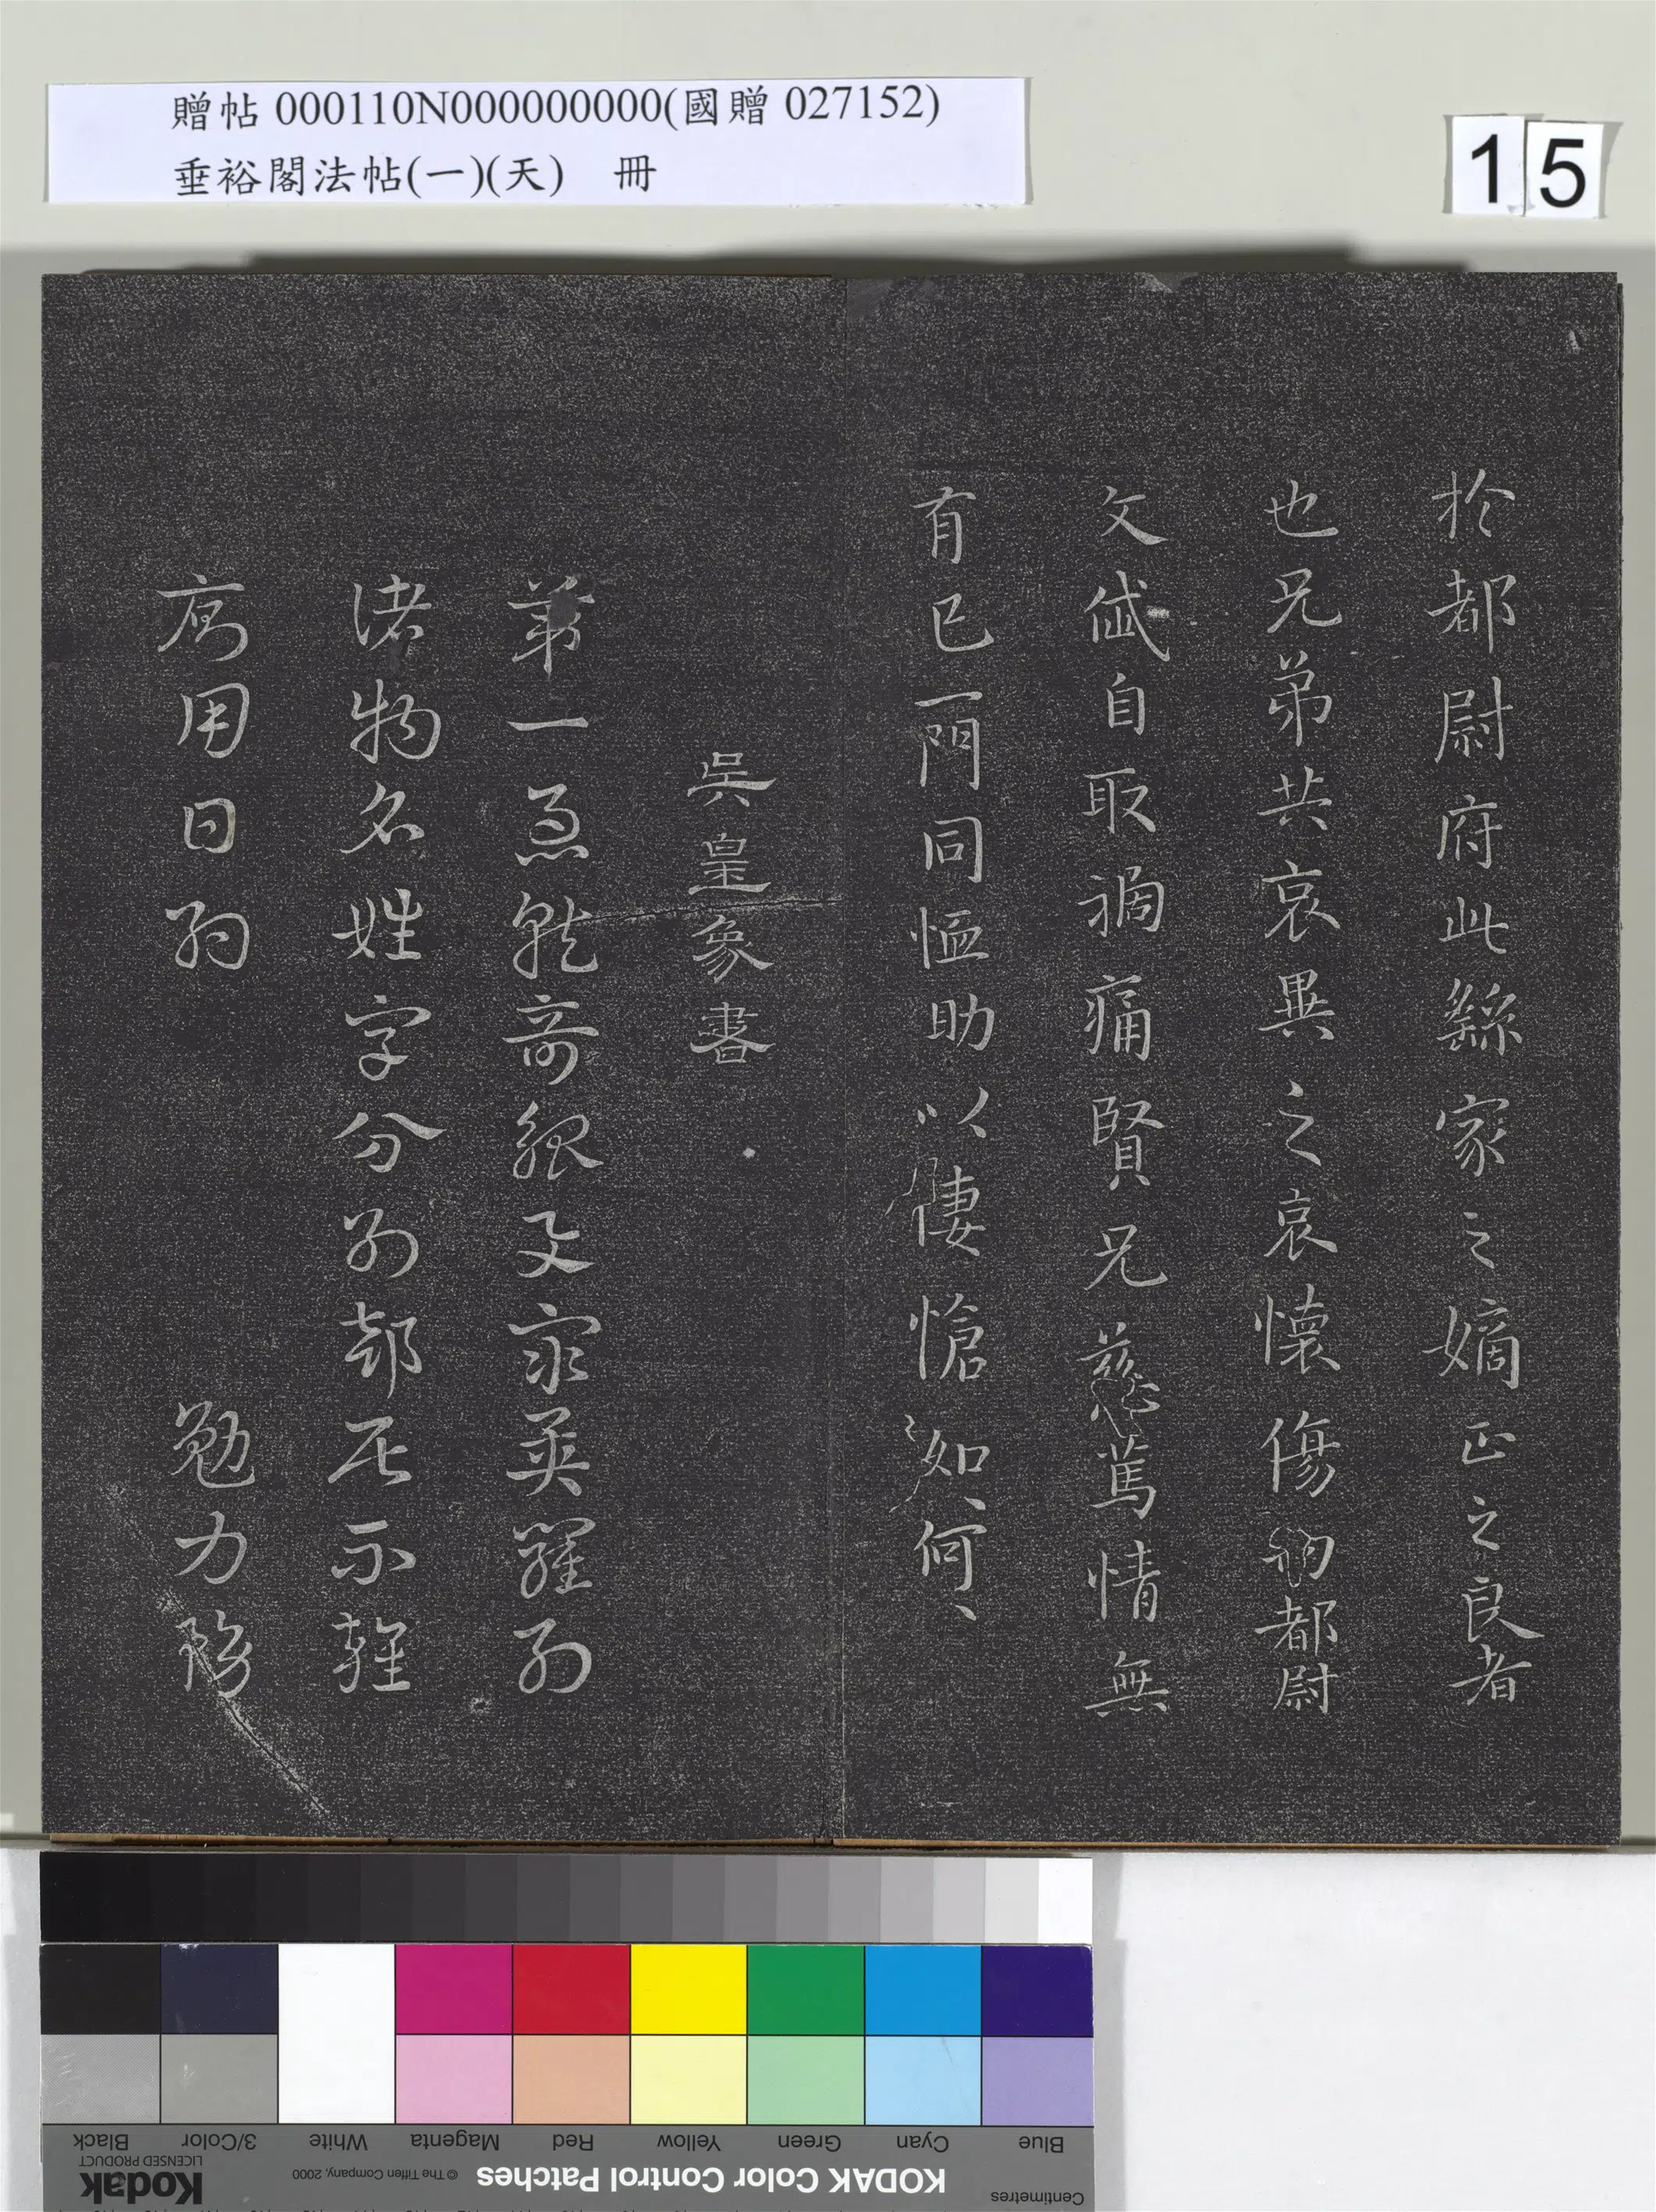 贈帖 000110N000000000(國贈 027152)
垂裕閣法帖(一)(天) 冊
15
於都尉府此繇家之嫡正之良者
也兄弟共哀異之哀懷傷祠都尉
文俶自取禍痛賢兄慈篤情無
有已一門同恤助以悽愴如何、
吳皇象書
第一急就奇觚與眾異羅列
諸物名姓字分別部居不雜
廁用日約 勉力務
Blue
Cyan
Green
Yellow
Red
Magenta
White
3/Color
Black
Centimetres
KODAK Color Control Patches
© The Tiffen Company, 2000
Kodak
LICENSED PRODUCT